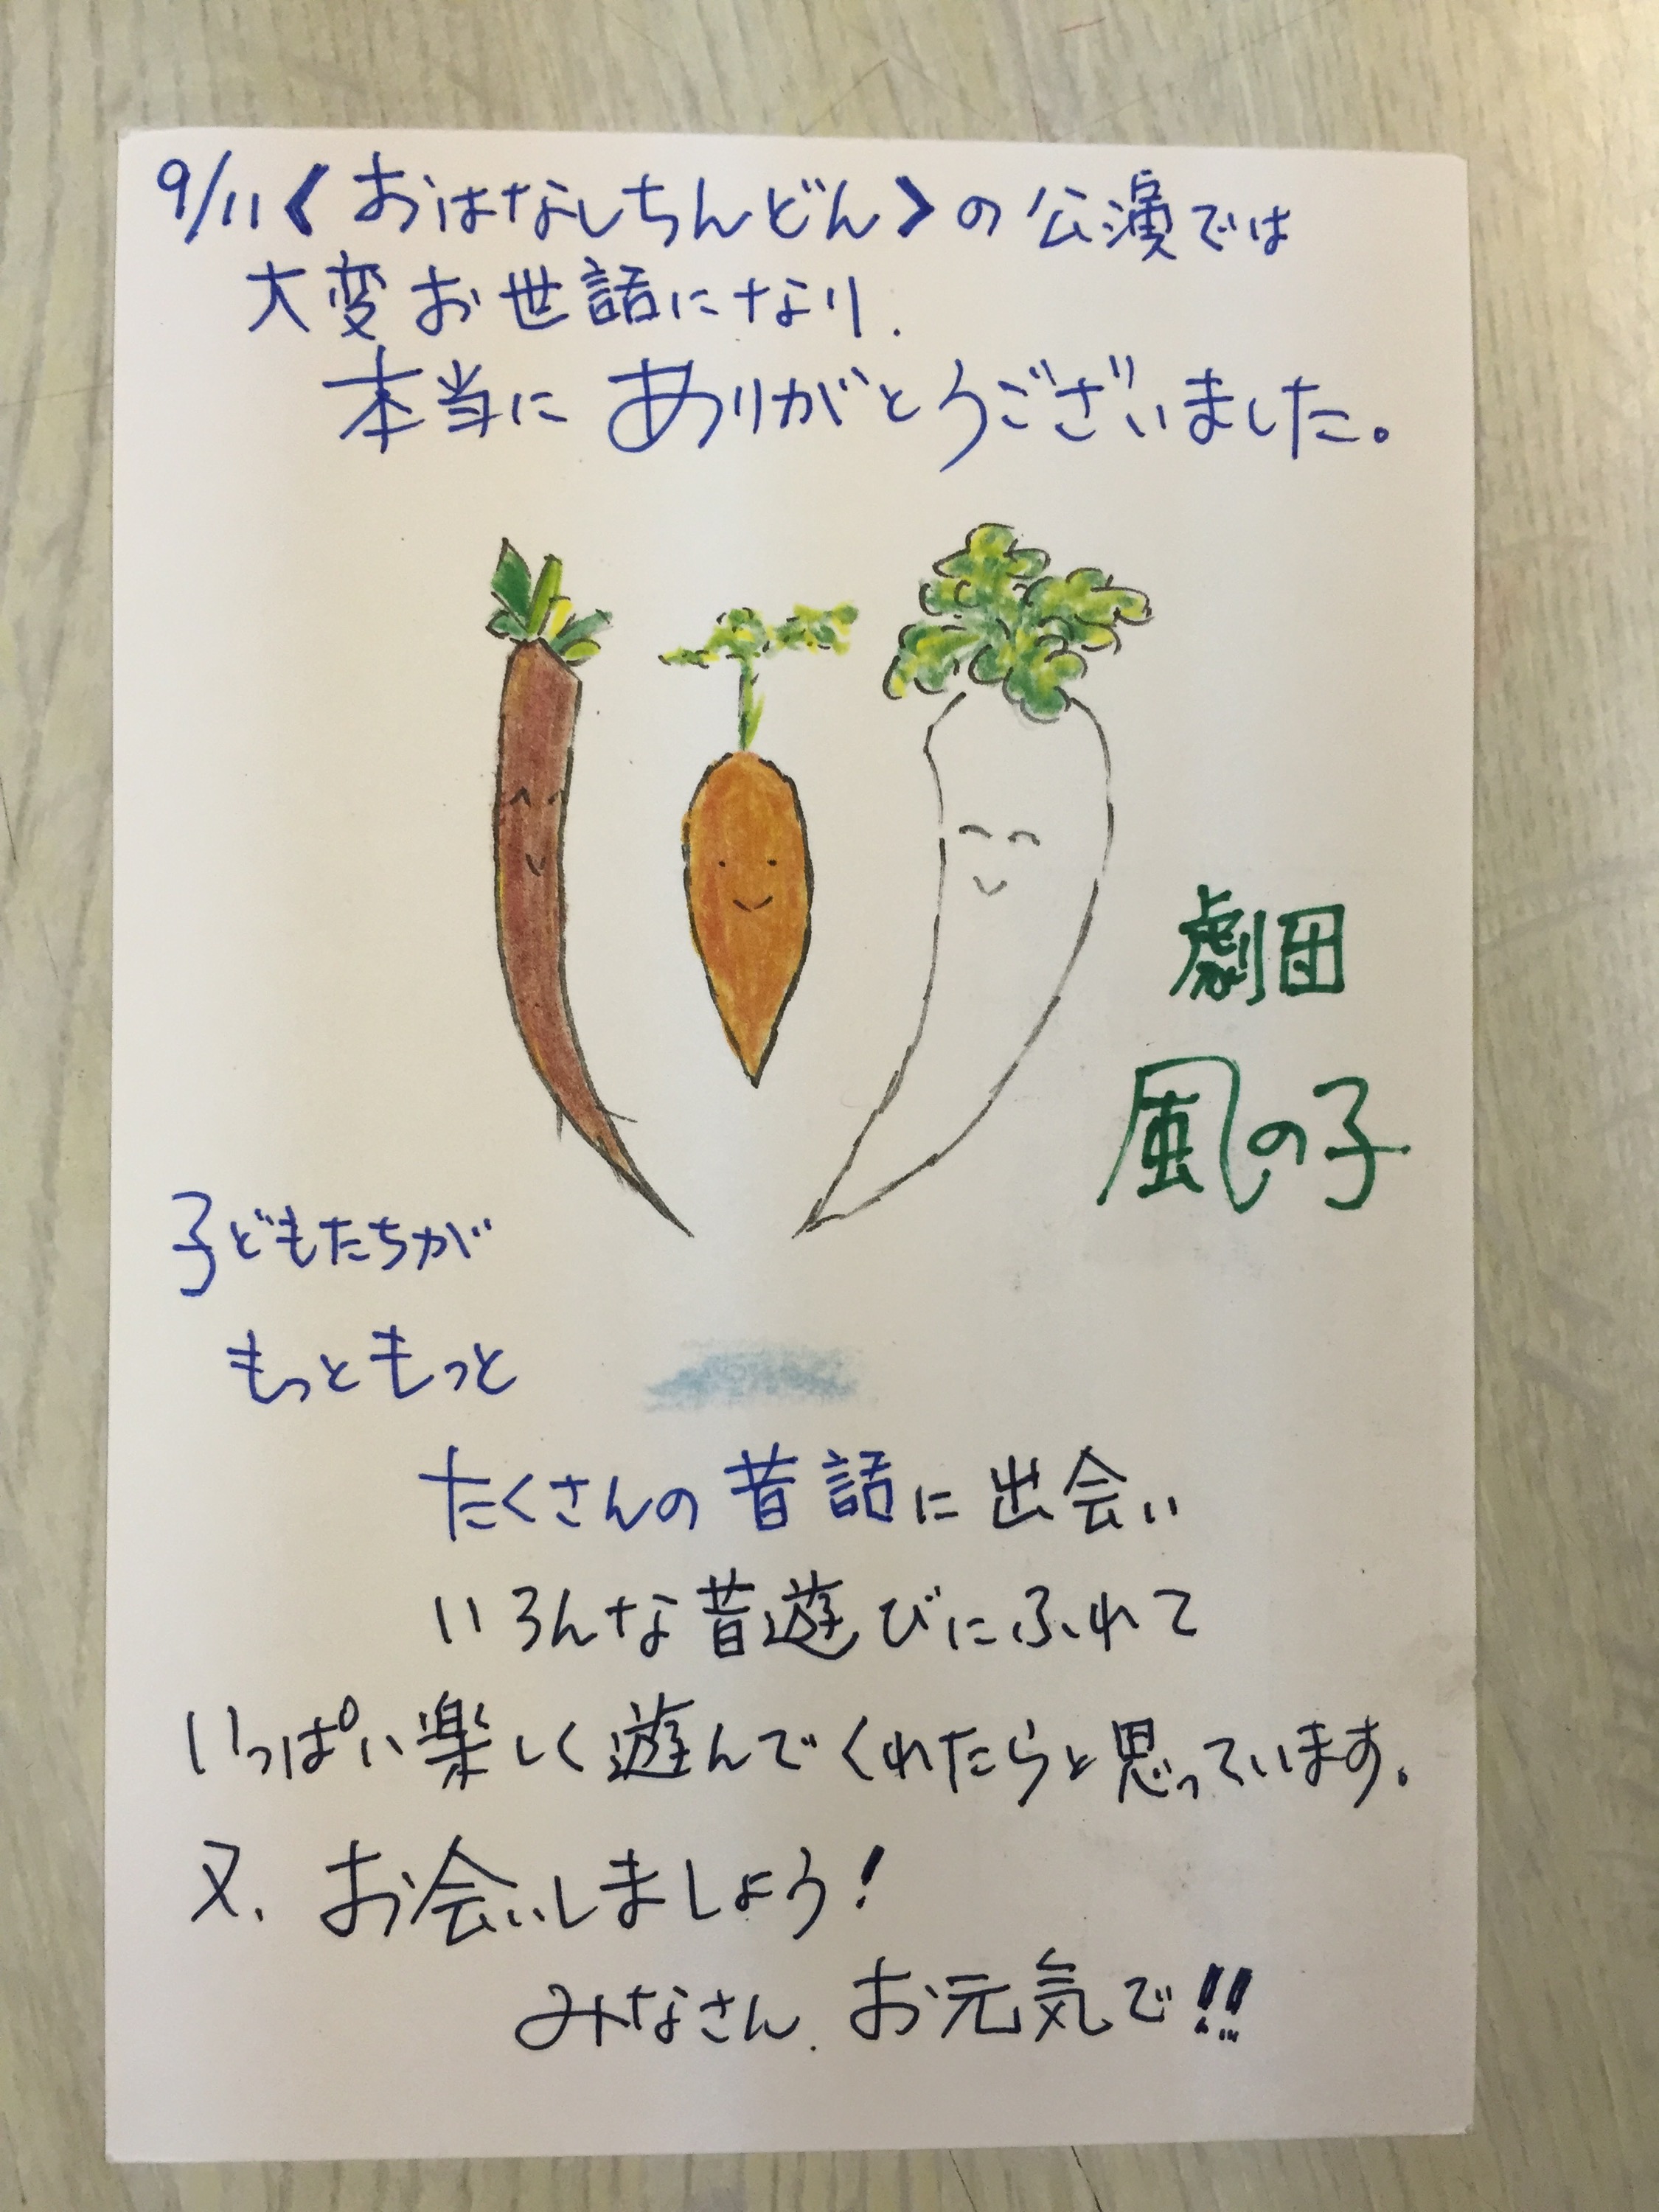 9/11《おはなしちんどん》の公演では
大変お世話になり.
本当にありがとうございました。
劇団
風の子
子どもたちが
もっともっと
たくさんの昔話に出会い
いろんな昔遊びにふれて
いっぱい楽しく遊んでくれたらと思っています。
又、お会いしましょう!
みなさん、お元気で!!